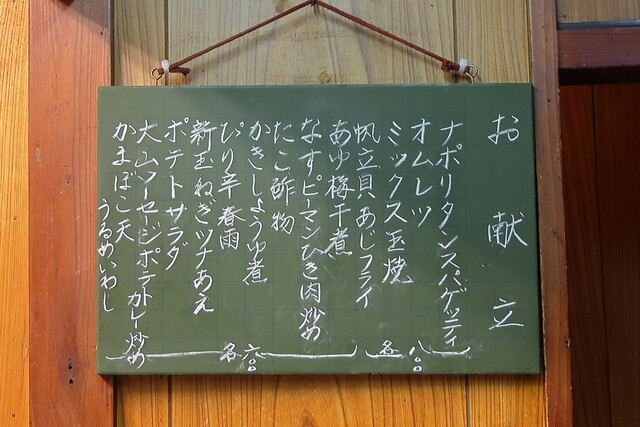 お献立
ナポリタンスパゲッティ
オムレツ
ミックス玉焼
帆立貝あじフライ
各八〇〇
あゆ梅干煮
なすピーマンひき肉炒め
たこ酢物
かきしょうゆ煮
ぴり辛春雨
新玉ねぎツナあえ
ポテトサラダ
大山ソーセージポテカレー炒め
かまぼこ天
うるめいわし
各六〇〇